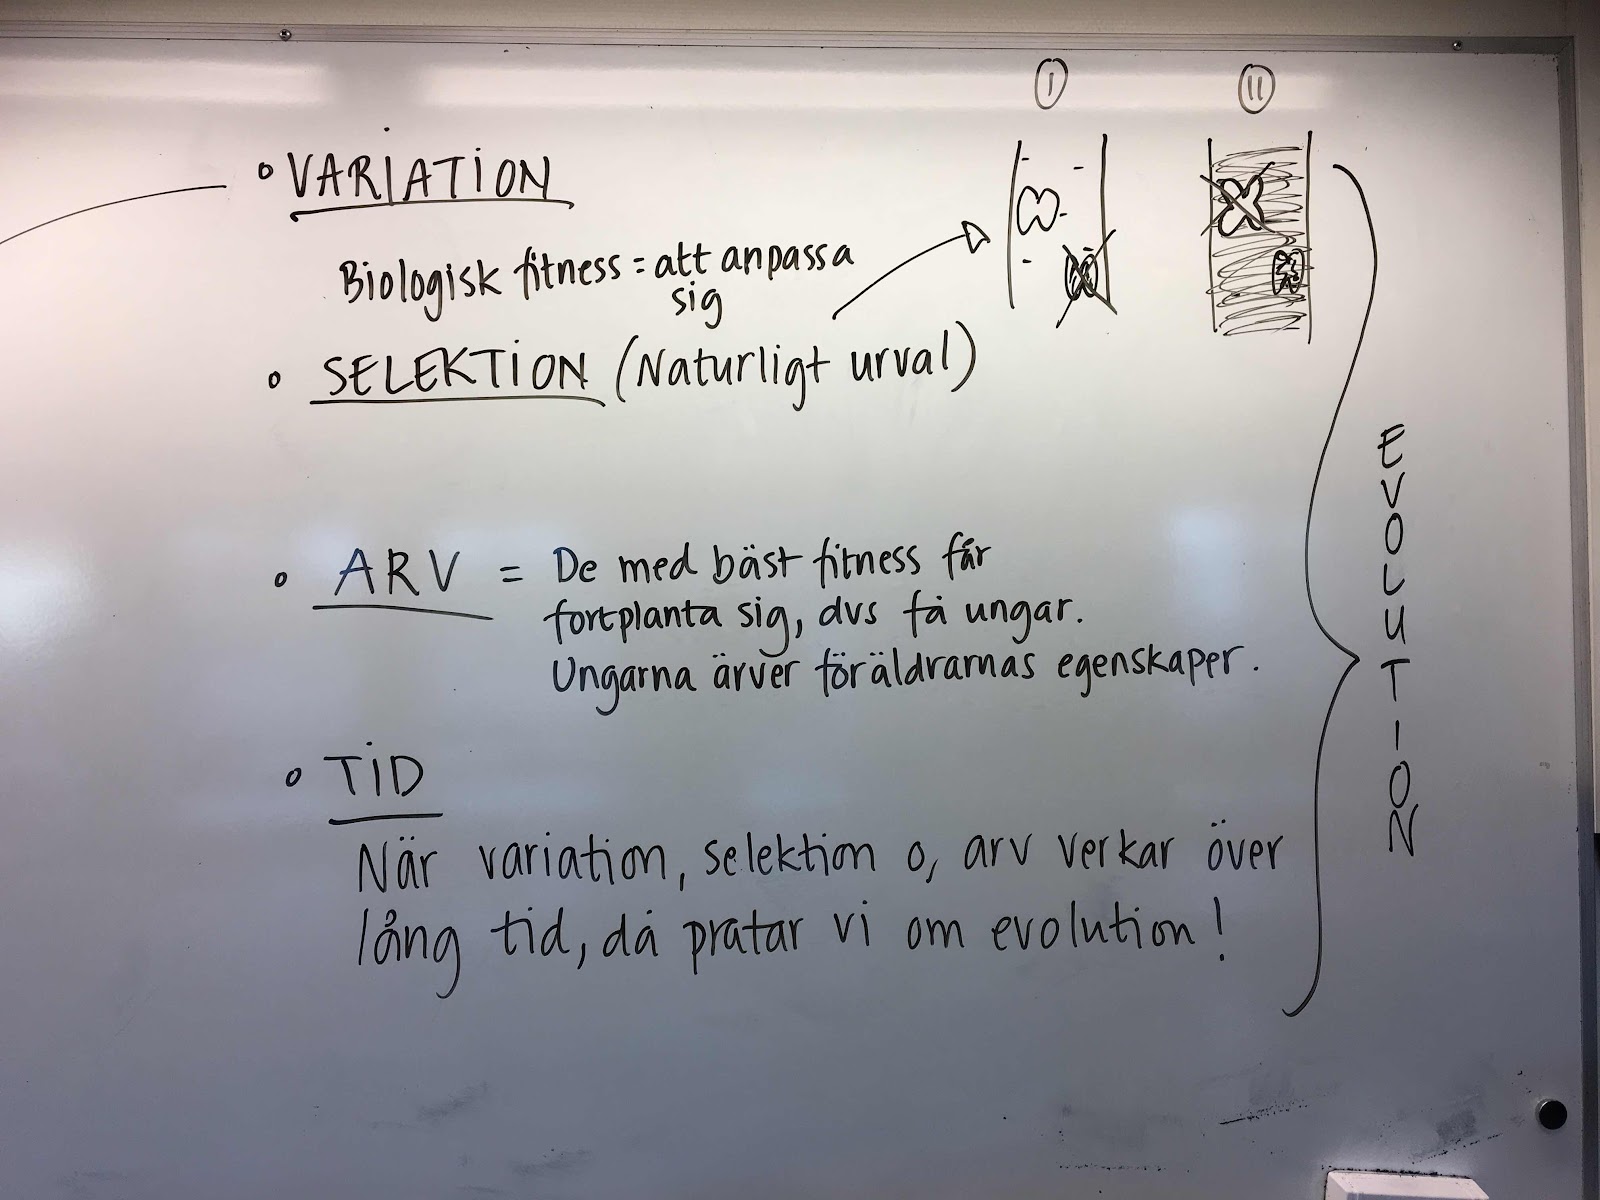 I
II
VARIATION
Biologisk fitness = att anpassa
sig
SELEKTION (Naturligt urval)
ARV = De med bäst fitness får
fortplanta sig, dvs få ungar.
Ungarna ärver föräldrarnas egenskaper.
TID
När variation, selektion o, arv verkar över
lång tid, då pratar vi om evolution!
EVOLUTION